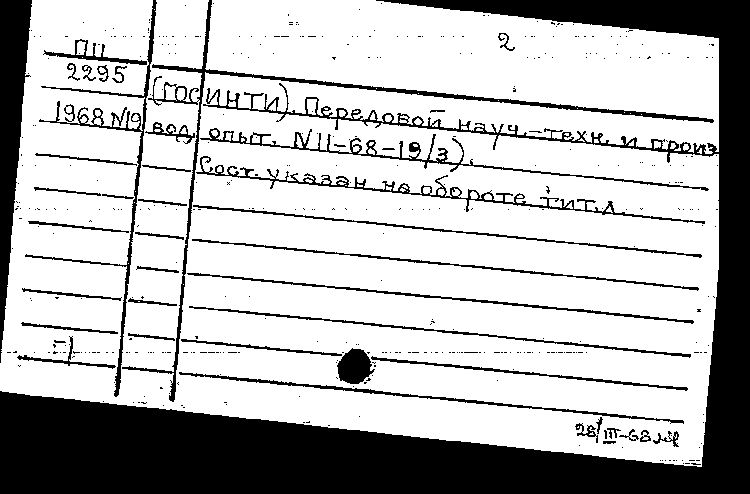 2
ПЦ
2295
(ГОСИНТИ). Передовой науч.-техн. и произ
1968 N19 вод. опыт. N11-68-19/3).
Сост. указан на обороте тит.л.
28/III-68